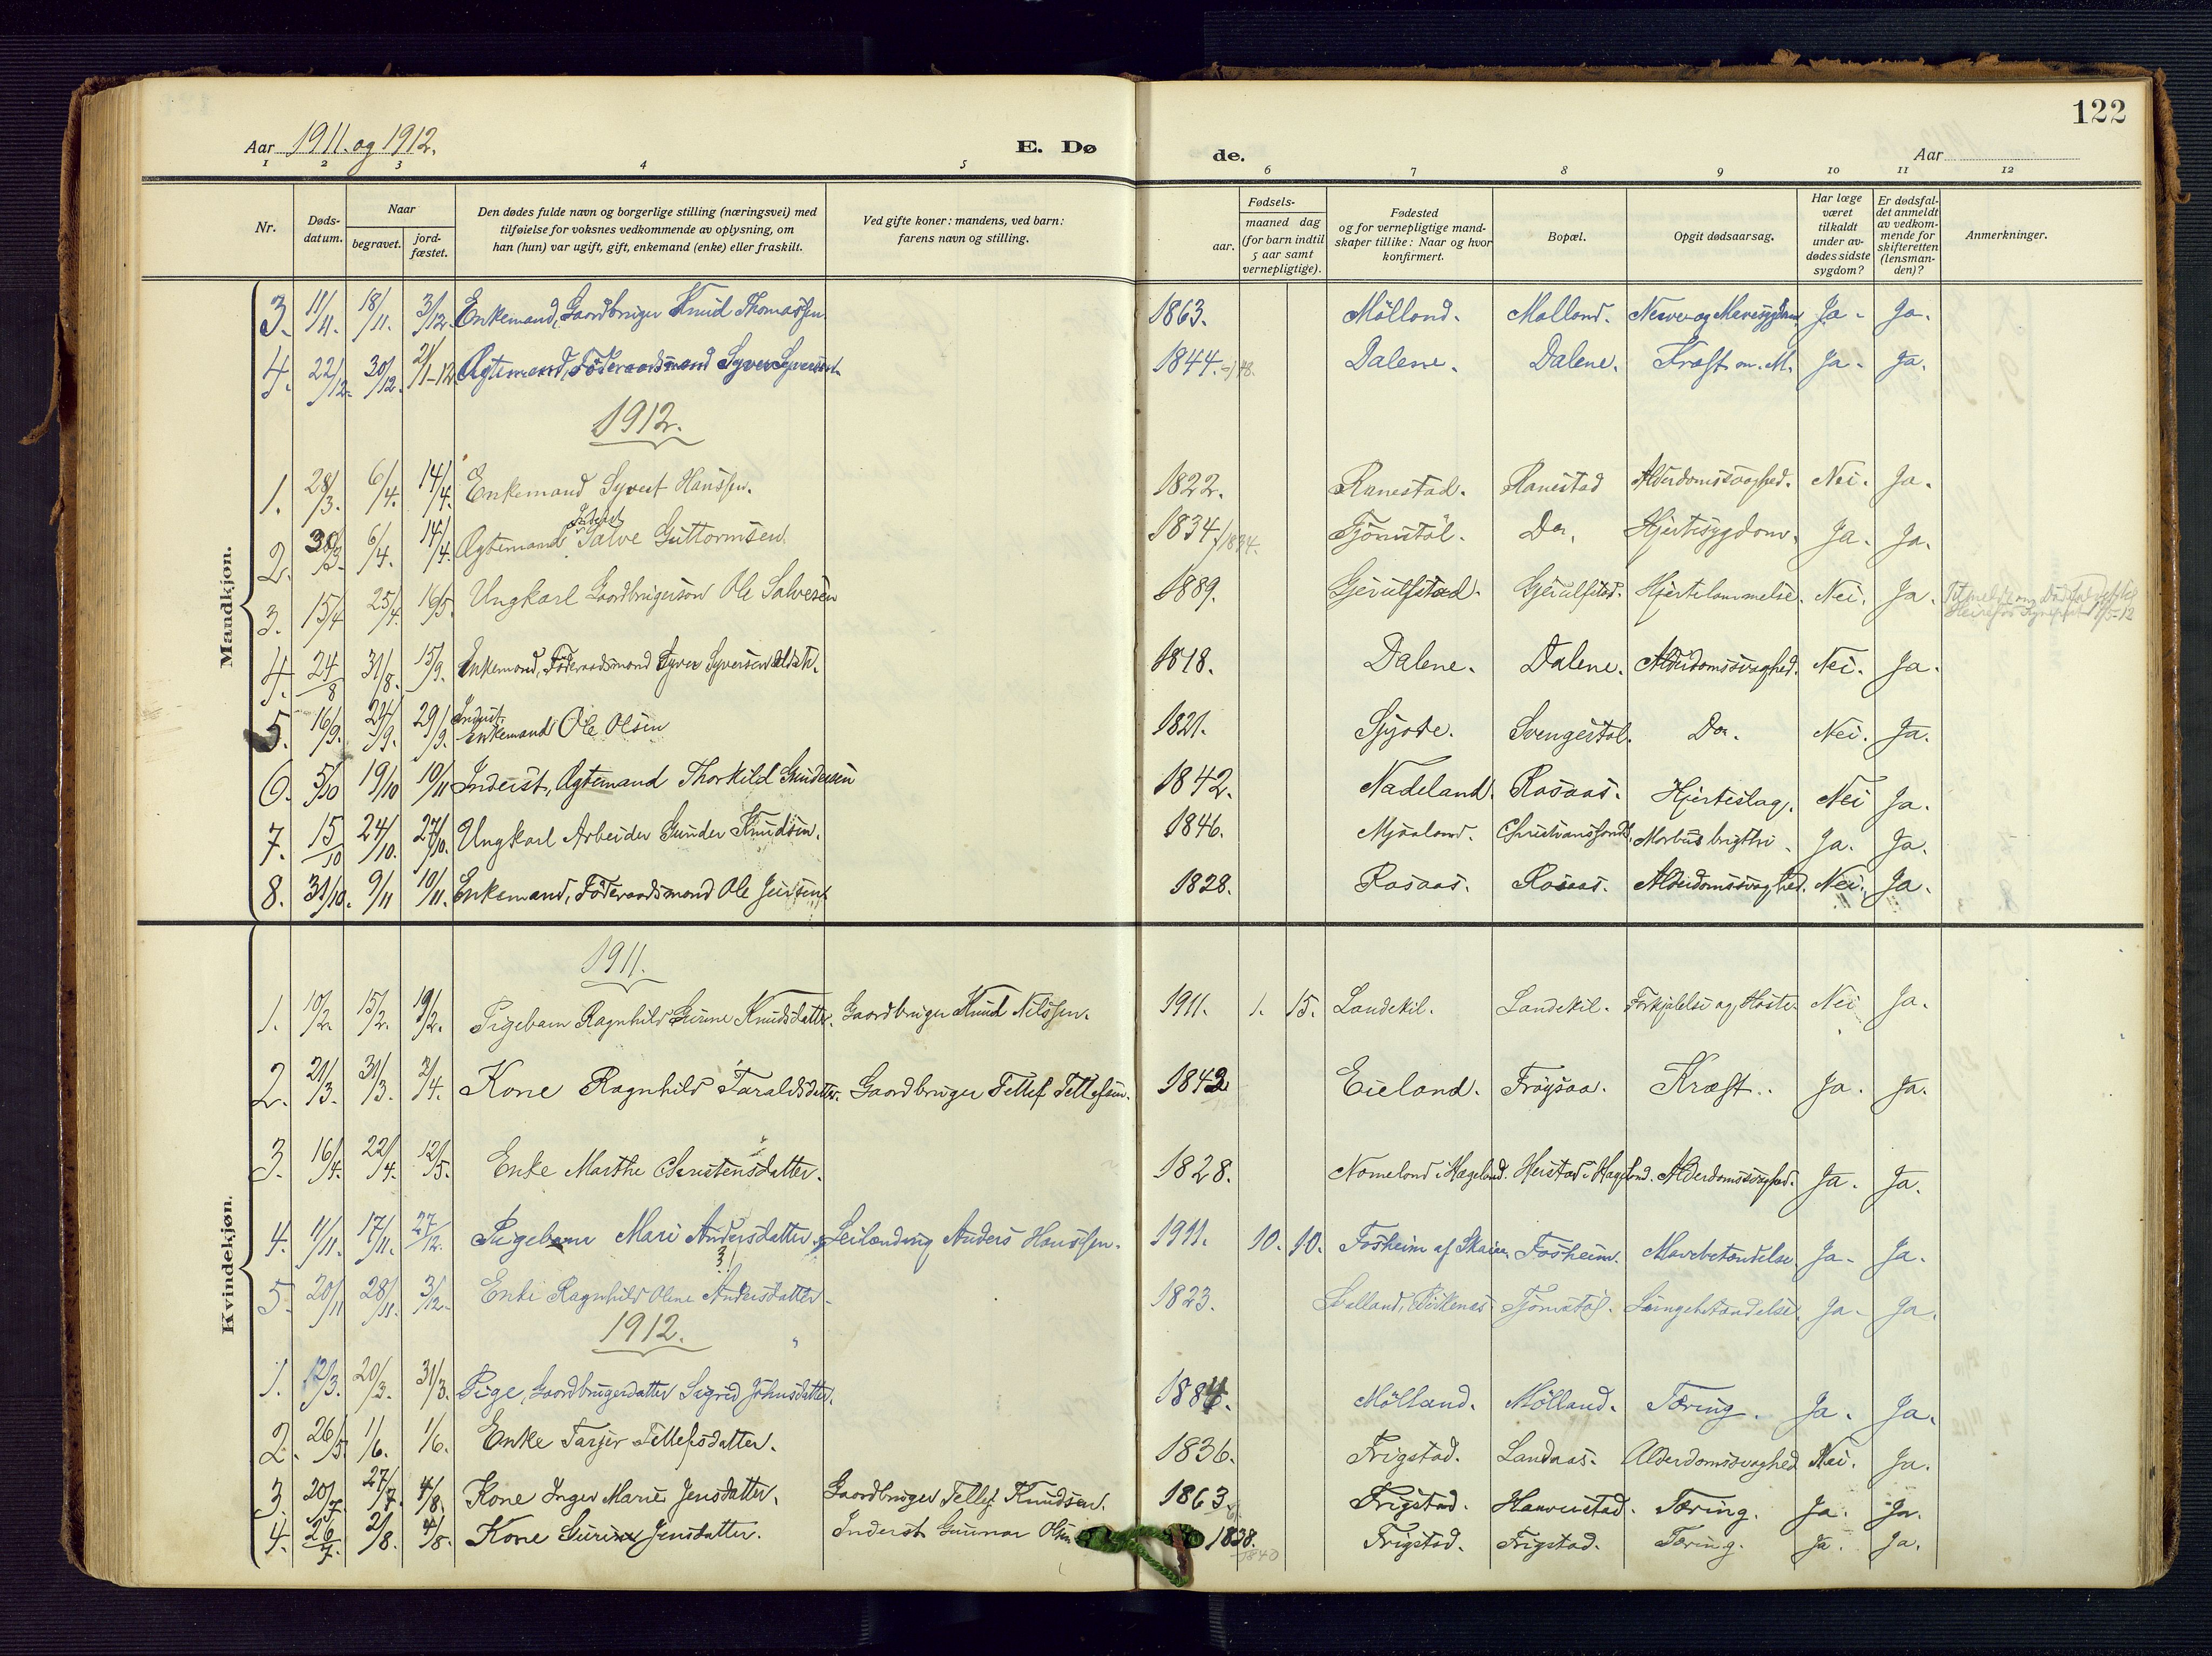 122
Aar 1911. og 1912.
E. Dø de.
Aar
1 2 3 4 5 6 7 8 9 10 11 12
Nr.
Døds-datum.
Naar
begravet.
jord-fæstet.
Den dødes fulde navn og borgerlige stilling (næringsvei) med
tilføielse for voksnes vedkommende av oplysning, om
han (hun) var ugift, gift, enkemand (enke) eller fraskilt.
Ved gifte koner: mandens, ved barn:
farens navn og stilling.
Fødsels-
aar.
maaned dag
(for barn indtil
5 aar samt
vernepligtige).
Fødested
og for vernepligtige mand-
skaper tillike: Naar og hvor
konfirmert.
Bopæl.
Opgit dødsaarsag.
Har læge
været
tilkaldt
under av-
dødes sidste
sygdom?
Er dødsfal-
det anmeldt
av vedkom-
mende for
skifteretten
(lensman-
den)?
Anmerkninger.
Mandkjøn.
3. 11/11. 18/11. 3/12. Enkemand, Gaardbruger Knud Thomassen 1863. Mølland. Mølland. Nerve og Mavesygdom Ja. Ja.
4. 22/12. 30/12. 21/1-12 Ægtemand, Føderaadsmand Syver Syversen 1844. Dalene. Dalene. Kræft Ja. Ja.
1912.
1. 28/3. 6/4. 14/4. Enkemand Syvert Hanssen. 1822. Ranestad. Ranestad Alderdomssvaghed. Nei. Ja.
2. 30/3. 6/4. 14/4. Ægtemand Inderst Salve Guttormsen. 1834. /1834. Tjømstøl. Do. Hjertesygdom. Ja. Ja.
3. 15/4 25/4. 16/5. Ungkarl Gaardbrugersøn Ole Salvesen 1889. Gjeiulfstad. Gjeiulfstad. Hjertelammelse. Nei. Ja.
4. 24/8 31/8. 15/9. Enkemand, Føderaadsmand Syver Syversen 1818. Dalene. Dalene. Alderdomssvaghed. Nei. Ja.
5. 16/9. 24/9. 29/9. Inderst. Enkemand Ole Olsen 1821. Svengestøl. Do. Nei. Ja.
6. 5/10 19/10 10/11 Inderst, Ægtemand Thorkild Gundersen 1842. Nadeland. Rosaas. Hjerteslag. Nei Ja.
7. 15/10 24/10. 27/10. Ungkarl Arbeider Gunder Knudsen. 1846. Mjaaland. Christianssand. Morbus brigthi. Ja. Ja.
8. 31/10. 9/11 10/11. Enkemand, Føderaadsmand Ole Jensen 1828. Rosaas. Rosaas. Alderdomssvaghed. Nei. Ja.
Kvindekjøn.
1911.
1. 10/2. 15/2. 19/2. Pigebarn Ragnhild Gurine Knudsdatter. Gaardbruger Knud Nilssen. 1911. 1. 15. Landekil. Landekil. Forkjølelse og Hoste Nei Ja.
2. 21/3. 31/3. 2/4. Kone Ragnhild Taraldsdatter. Gaardbruger Tellef Tellefsen. 1842 Eieland. Frøysaa. Kræft. Ja. Ja.
3. 16/4. 22/4. 12/5. Enke Marthe Christensdatter. 1828. Nomeland i Hægeland. Heistad i Hægeland. Alderdomssvaghed. Ja. Ja.
4. 11/11. 17/11. 27/12. Pigebarn Mari Andersdatter. Leilænding Anders Hanssen. 1911. 10. 10. Fosheim af Skaiaa. Fosheim. Mavebetændelse. Ja. Ja.
5. 20/11 28/11. 3/12. Enke Ragnhild Oline Andersdatter. 1823. Birkenes Tjømstøl. Lungebetændelse. Ja. Ja.
1912.
1. 12/3. 20/3. 31/3. Pige, Gaardbrugerdatter Sigrid Johnsdatter. 1884. Mølland. Mølland. Tæring. Ja. Ja.
2. 26/5. 1/6. 1/6. Enke Tarjer Tellefsdatter. 1836. Frigstad. Landaas. Alderdomssvaghed Nei. Ja.
3. 20/7 27/7. 4/8. Kone Inger Marie Jensdatter. Gaardbruger Tellef Knudsen. 1863 Frigstad. Hanverstad. Tæring. Ja. Ja.
4. 26/7. 2/8. 4/8. Kone Gurine Jensdatter. Inderst Gunnar Olsen 1838. 1840 Frigstad. Frigstad. Tæring. Ja. Ja.